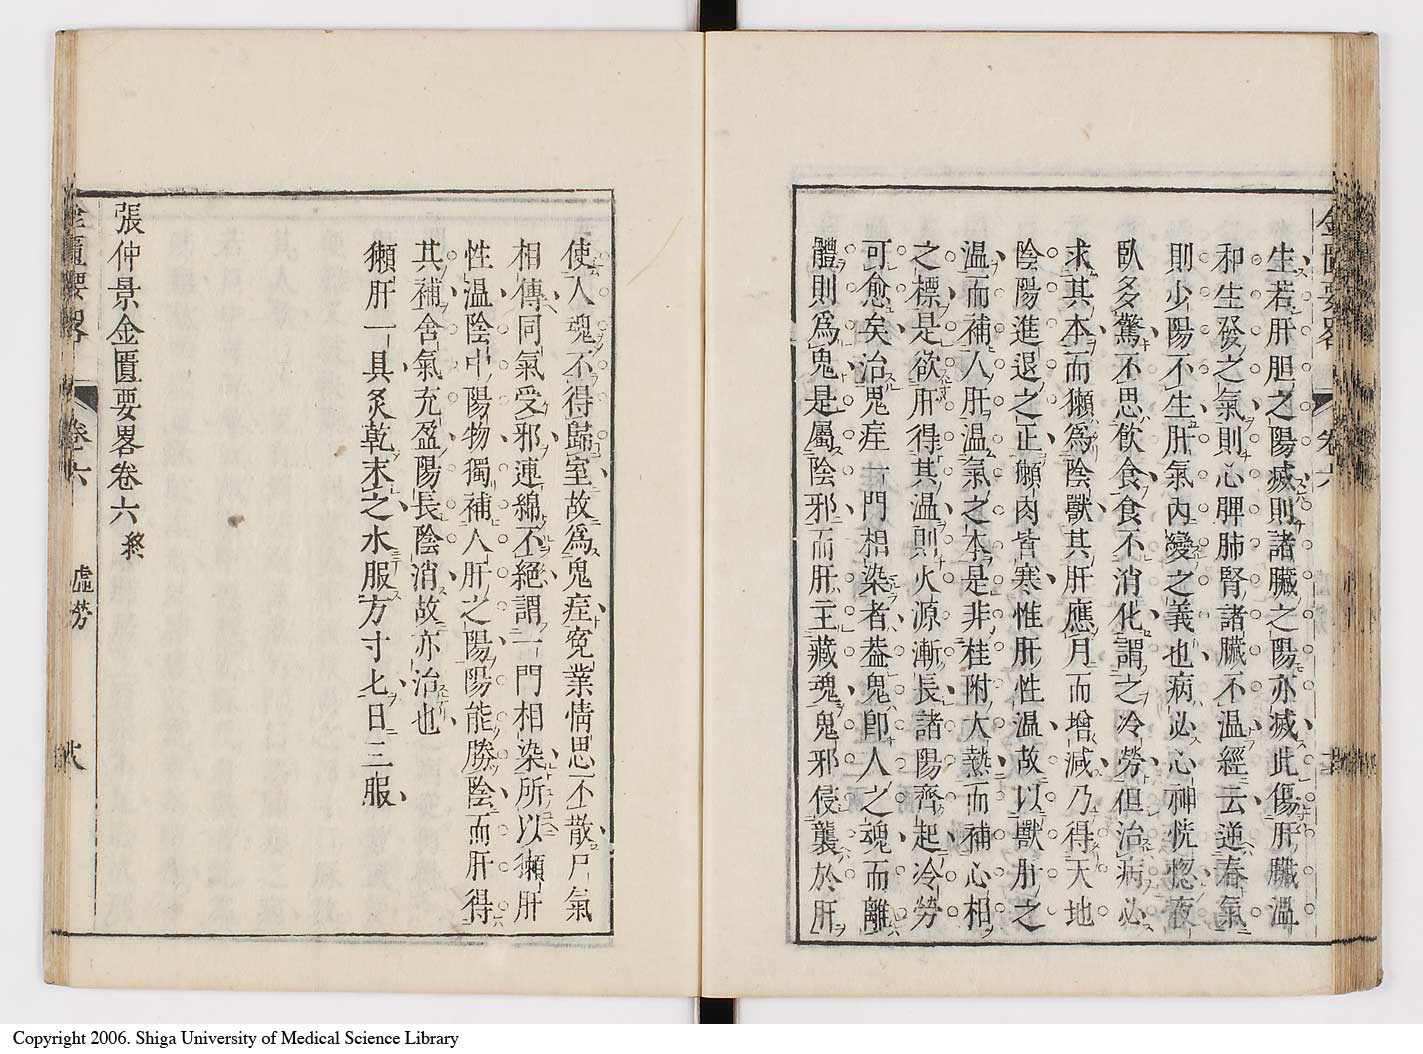 生若肝胆之陽痿則諸臟之陽亦減此傷肝臟溫
和生發之氣則心脾肺腎諸臟不溫經云逆春氣
則少陽不生肝氣內變之義也病必心神恍惚夜
臥多驚不思飲食食不消化謂之冷勞但治病必
求其本而獺為陰獸其肝應月而增減乃得天地
陰陽進退之正獺肉皆寒惟肝性溫故以獸肝之
溫而補人肝溫氣之本是非桂附大熱而補心相
之標是欲肝得其溫則火源漸長諸陽齊起冷勞
可愈矣治鬼疰一門相染者蓋鬼卽人之魂而離
體則為鬼是屬陰邪而肝主藏魂鬼邪侵襲於肝
金匱要畧
卷六
使人魂不得歸室故為鬼疰寃業情思不散尸氣
相傳同氣受邪連綿不絕謂一門相染所以獺肝
性溫陰中陽物獨補人肝之陽陽能勝陰而肝得
其補舍氣充盈陽長陰消故亦治也
獺肝一具炙乾末之水服方寸匕日三服
張仲景金匱要畧卷六 終
金匱要畧
卷六
虛勞
Copyright 2006. Shiga University of Medical Science Library